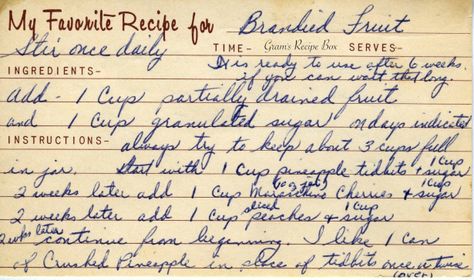 My Favorite Recipe for Brandied Fruit
Stir once daily
TIME- Gram's Recipe Box SERVES-
It is ready to use after 6 weeks.
INGREDIENTS- if you can wait this long.
add - 1 Cup partially drained fruit
and 1 Cup granulated sugar on days indicated
INSTRUCTIONS- always try to keep about 3 cups full
in jar. Start with 1 Cup pineapple tidbits + 1 Cup sugar
2 weeks later add 1 Cup Maraschino Cherries + 1 Cup sugar
2 weeks later add 1 Cup sliced peaches + 1 Cup sugar
2 wks later continue from beginning. I like 1 Can
of Crushed Pineapple in place of tidbits once in twice
(over)